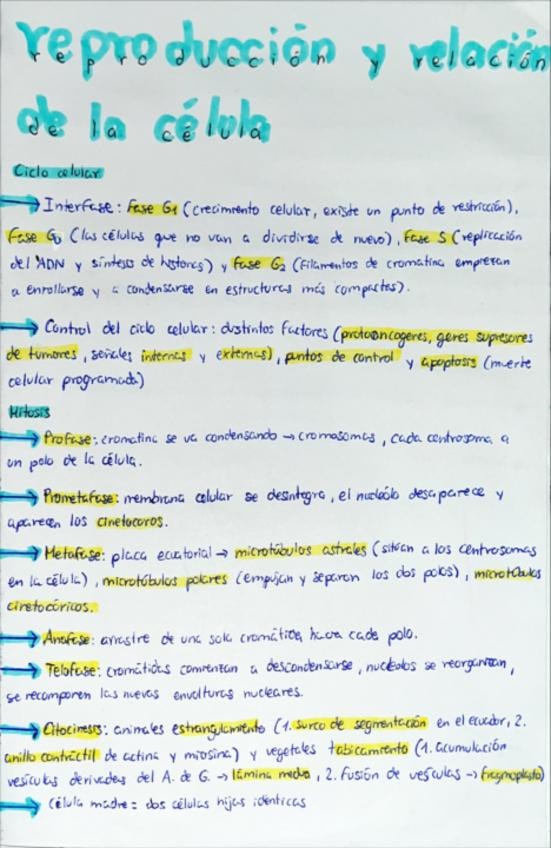 reproducción y relación
de la célula
Ciclo celular
→ Interfase: Fase G1 (crecimiento celular, existe un punto de restricción),
Fase G0 (las células que no van a dividirse de nuevo), Fase S (replicación
del ADN y síntesis de histonas) y Fase G2 (filamentos de cromatina empiezan
a enrollarse y a condensarse en estructuras más compactas).
→ Control del ciclo celular: distintos factores (protooncogenes, genes supresores
de tumores, señales internas y externas), puntos de control y apoptosis (muerte
celular programada)
Mitosis
→ Profase: cromatina se va condensando → cromosomas, cada centrosoma a
un polo de la célula.
→ Prometafase: membrana celular se desintegra, el nucleólo desaparece y
aparecen los cinetocoros.
→ Metafase: placa ecuatorial → microtúbulos astrales (sitúan a los centrosomas
en la célula), microtúbulos polares (empujan y separan los dos polos), microtúbulos
cinetocóricos.
→ Anafase: arrastre de una sola cromátida hacia cada polo.
→ Telofase: cromátidas comienzan a descondensarse, nucleolos se reorganizan,
se recomponen las nuevas envolturas nucleares.
→ Citocinesis: animales estrangulamiento (1. surco de segmentación en el ecuador, 2.
anillo contráctil de actina y miosina) y vegetales tabicamiento (1. acumulación
vesículas derivadas del A. de G. → lámina media, 2. fusión de vesículas → fragmoplasto)
→ Célula madre = dos células hijas identicas